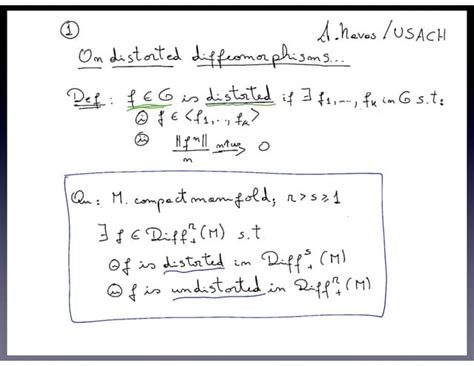 ① A. Navas / USACH
On distorted diffeomorphisms...
Def: f ∈ G is distorted if ∃ f₁,..., fₖ in G s.t:
i) f ∈ <f₁,..., fₖ>
ii) ||fⁿ|| / n —n→∞→ 0
Qn: M. compact manifold, r > s ≥ 1
∃ f ∈ Diff₊ʳ(M) s.t
i) f is distorted in Diff₊ˢ(M)
ii) f is undistorted in Diff₊ʳ(M)